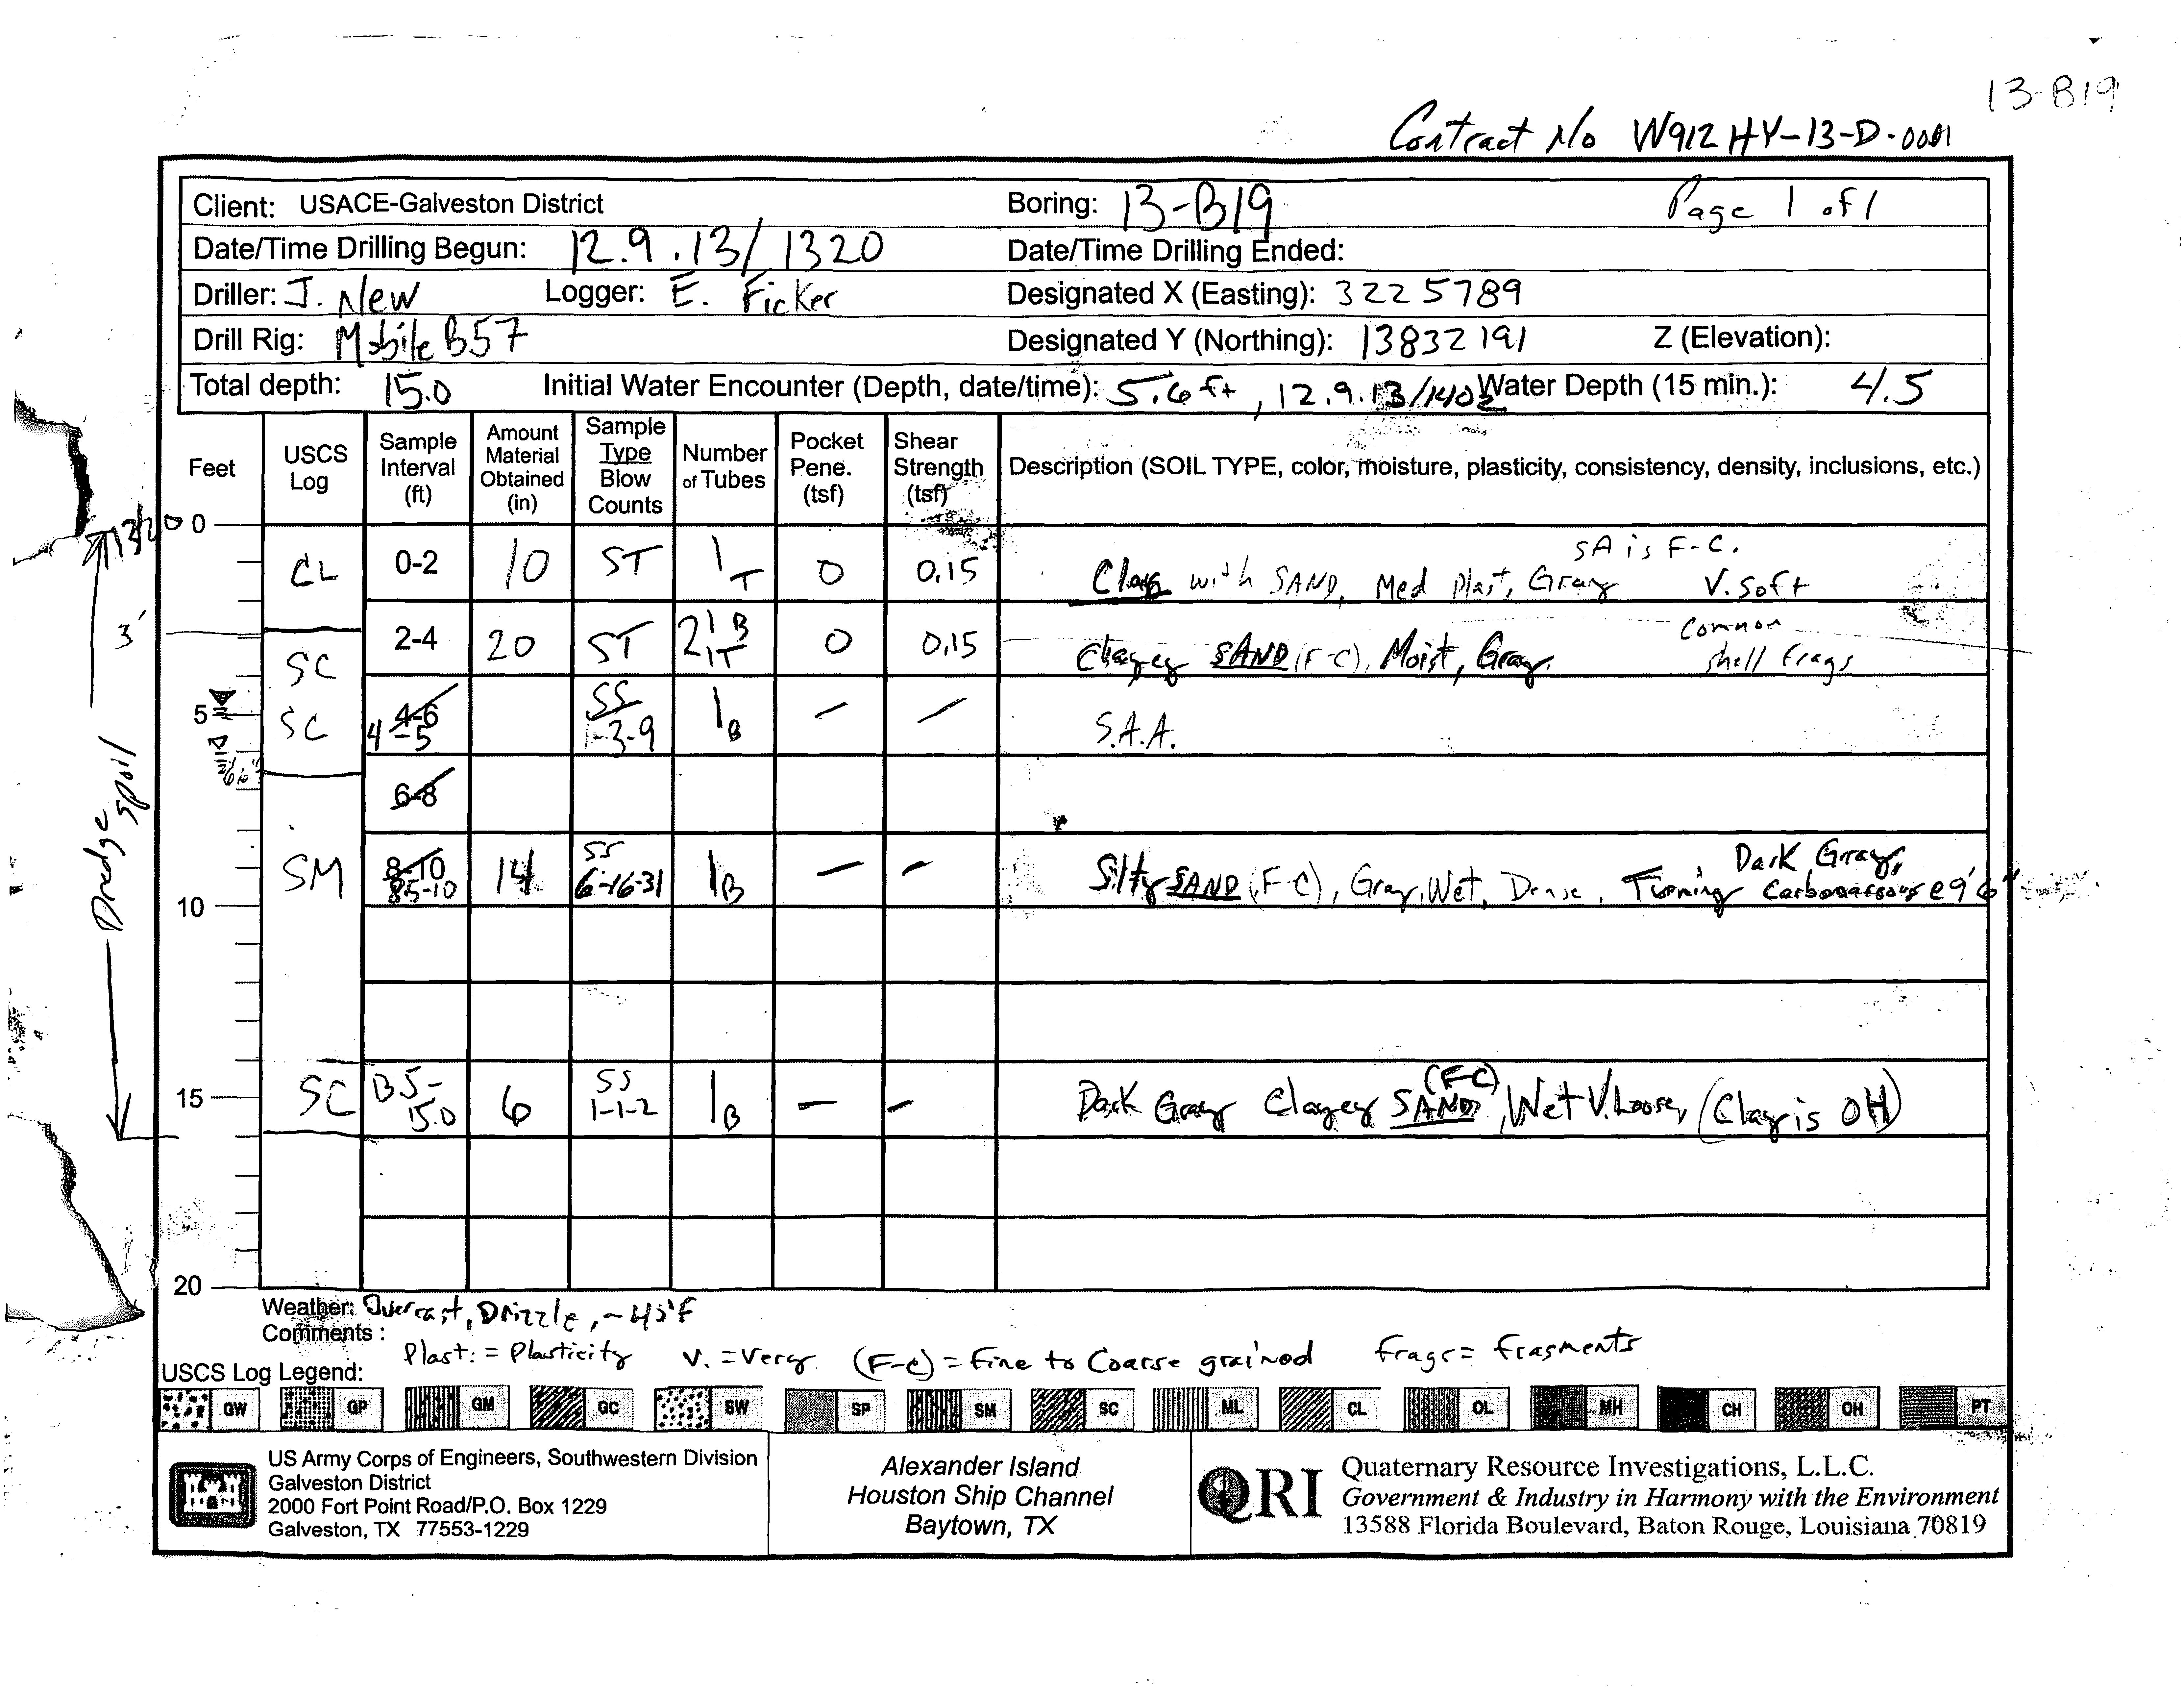 13-B19
Contract No W912HY-13-D-0001
Client: USACE-Galveston District Boring: 13-B19 Page 1 of 1
Date/Time Drilling Begun: 12.9.13/1320 Date/Time Drilling Ended:
Driller: J. New Logger: E. Ficker Designated X (Easting): 3225789
Drill Rig: Mobile B57 Designated Y (Northing): 13832191 Z (Elevation):
Total depth: 15.0 Initial Water Encounter (Depth, date/time): 5.6 ft, 12.9.13/1402 Water Depth (15 min.): 4.5
Feet USCS Log Sample Interval (ft) Amount Material Obtained (in) Sample Type Blow Counts Number of Tubes Pocket Pene. (tsf) Shear Strength (tsf) Description (SOIL TYPE, color, moisture, plasticity, consistency, density, inclusions, etc.)
1320 0
SA is F-C.
CL 0-2 10 ST 1 T 0 0.15 Clay with SAND, Med Plast, Gray V. Soft
3'
SC 2-4 20 ST 2 1B 1T 0 0.15 Clayey SAND (F-C), Moist, Gray. Common shell frags
5 SC 4-6 4-5 SS 1-3-9 1 B – – S.A.A.
6-8
SM 8-10 8.5-10 14 SS 6-16-31 1 B – – Silty SAND (F-C), Gray, Wet, Dense, Turning Dark Gray, Carbonaceous @ 9'6"
10
Dredge spoil
15 SC 13.5-15.0 6 SS 1-1-2 1 B – – Dark Gray Clayey SAND (F-C), Wet V. Loose, (Clay is OH)
20
Weather: Overcast, Drizzle, ~45°F
Comments:
Plast. = Plasticity V. = Very (F-C) = Fine to Coarse grained frags = fragments
USCS Log Legend:
GW GP GM GC SW SP SM SC ML CL OL MH CH OH PT
US Army Corps of Engineers, Southwestern Division
Galveston District
2000 Fort Point Road/P.O. Box 1229
Galveston, TX 77553-1229
Alexander Island
Houston Ship Channel
Baytown, TX
QRI
Quaternary Resource Investigations, L.L.C.
Government & Industry in Harmony with the Environment
13588 Florida Boulevard, Baton Rouge, Louisiana 70819